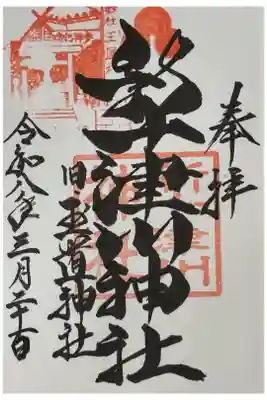 奉拝
津川神社
旧王道神社
令和八年三月二十一日